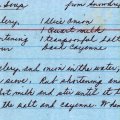 Soup from
lery, 1 slice onion
1 quart milk
htening 1 teaspoonful salt
our dash cayenne
lery, and onion in the water,
sieve. Rub shortening and
hot milk and stir until it
the salt and cayenne.